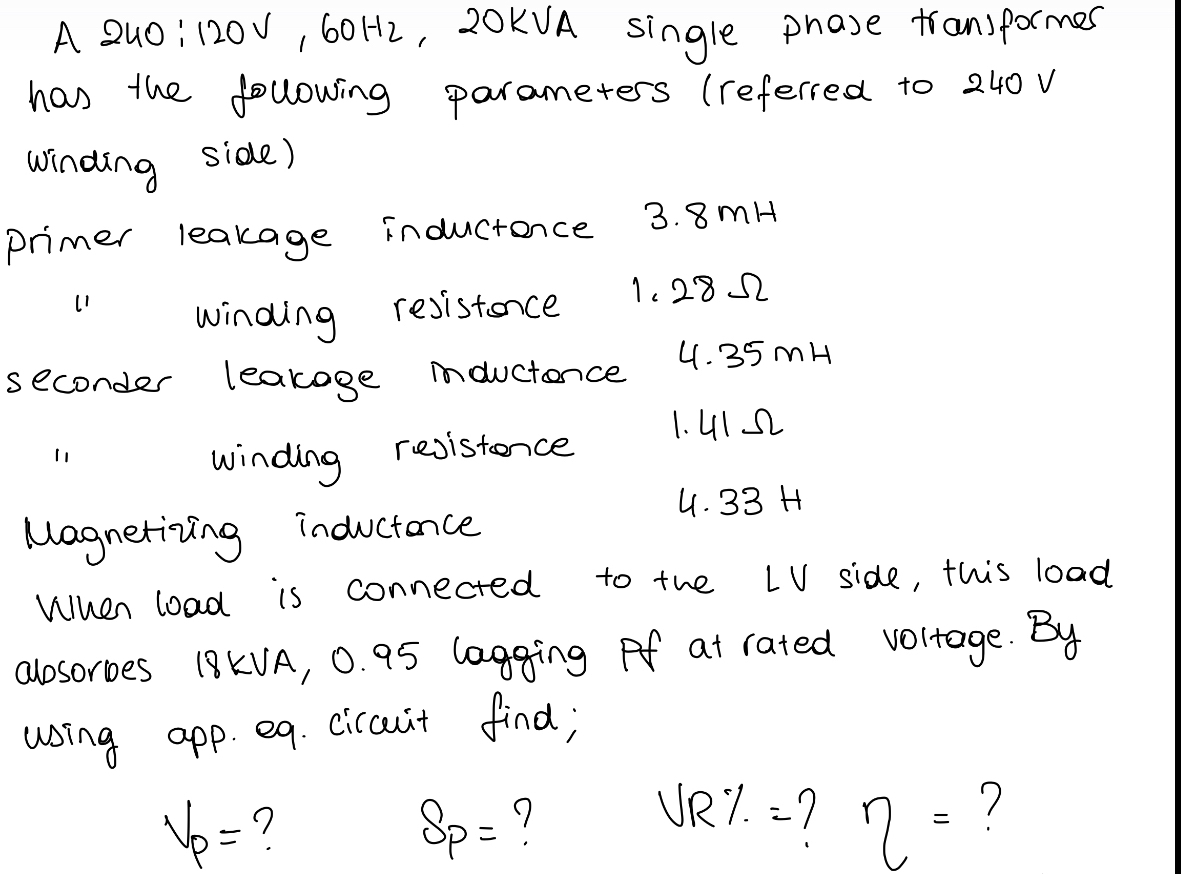 A 240:120V, 60Hz, 20KVA single phase transformer
has the following parameters (referred to 240 V
winding side)
primer leakage inductance 3.8mH
" winding resistance 1.28 Ω
seconder leakage inductance 4.35 mH
" winding resistance 1.41 Ω
Magnetizing inductance 4.33 H
When load is connected to the LV side, this load
absorbes 18KVA, 0.95 lagging Pf at rated voltage. By
using app. eq. circuit find;
Vp=? Sp=? VR%=? η=?